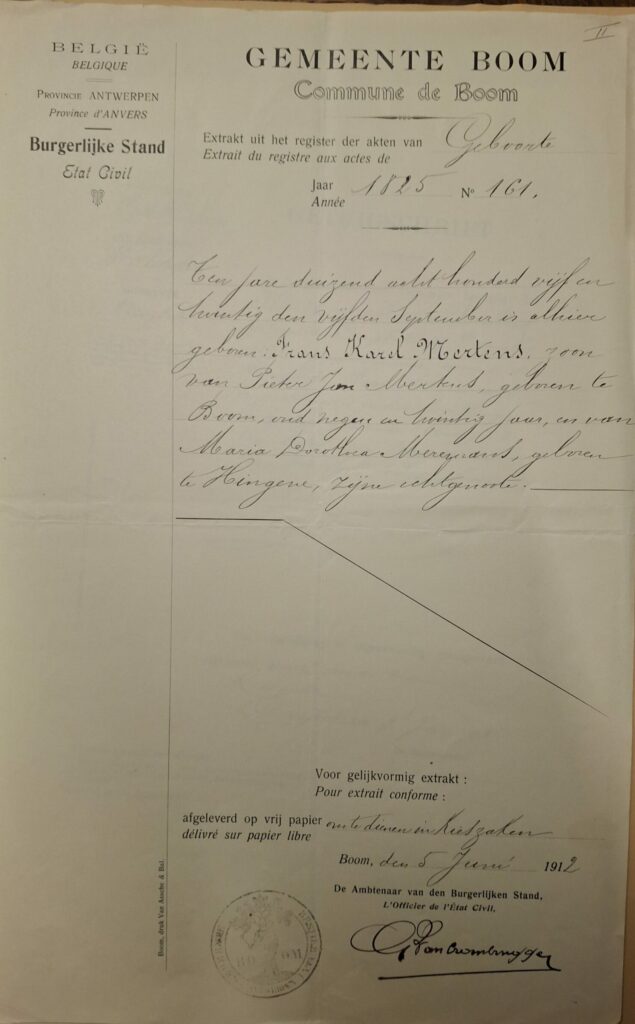 II
BELGIË
BELGIQUE
PROVINCIE ANTWERPEN
Province d'ANVERS
Burgerlijke Stand
Etat Civil
GEMEENTE BOOM
Commune de Boom
Extrakt uit het register der akten van Geboorte
Extrait du registre aux actes de
Jaar 1825 No 161.
Année
Ten jare duizend acht honderd vijf en
twintig den vijfden September is alhier
geboren: Frans Karel Mertens, zoon
van Pieter Jan Mertens, geboren te
Boom, oud negen en twintig jaar, en van
Maria Dorothea geboren
te Hingene, zijne echtgenoote.
Voor gelijkvormig extrakt :
Pour extrait conforme :
afgeleverd op vrij papier om te dienen in Kieszaken
délivré sur papier libre
Boom, den 5 Juni 1912
De Ambtenaar van den Burgerlijken Stand,
L'Officier de l'État Civil,
Van Crombruggen
BOOM
Boom, druk Van Assche & Bal.